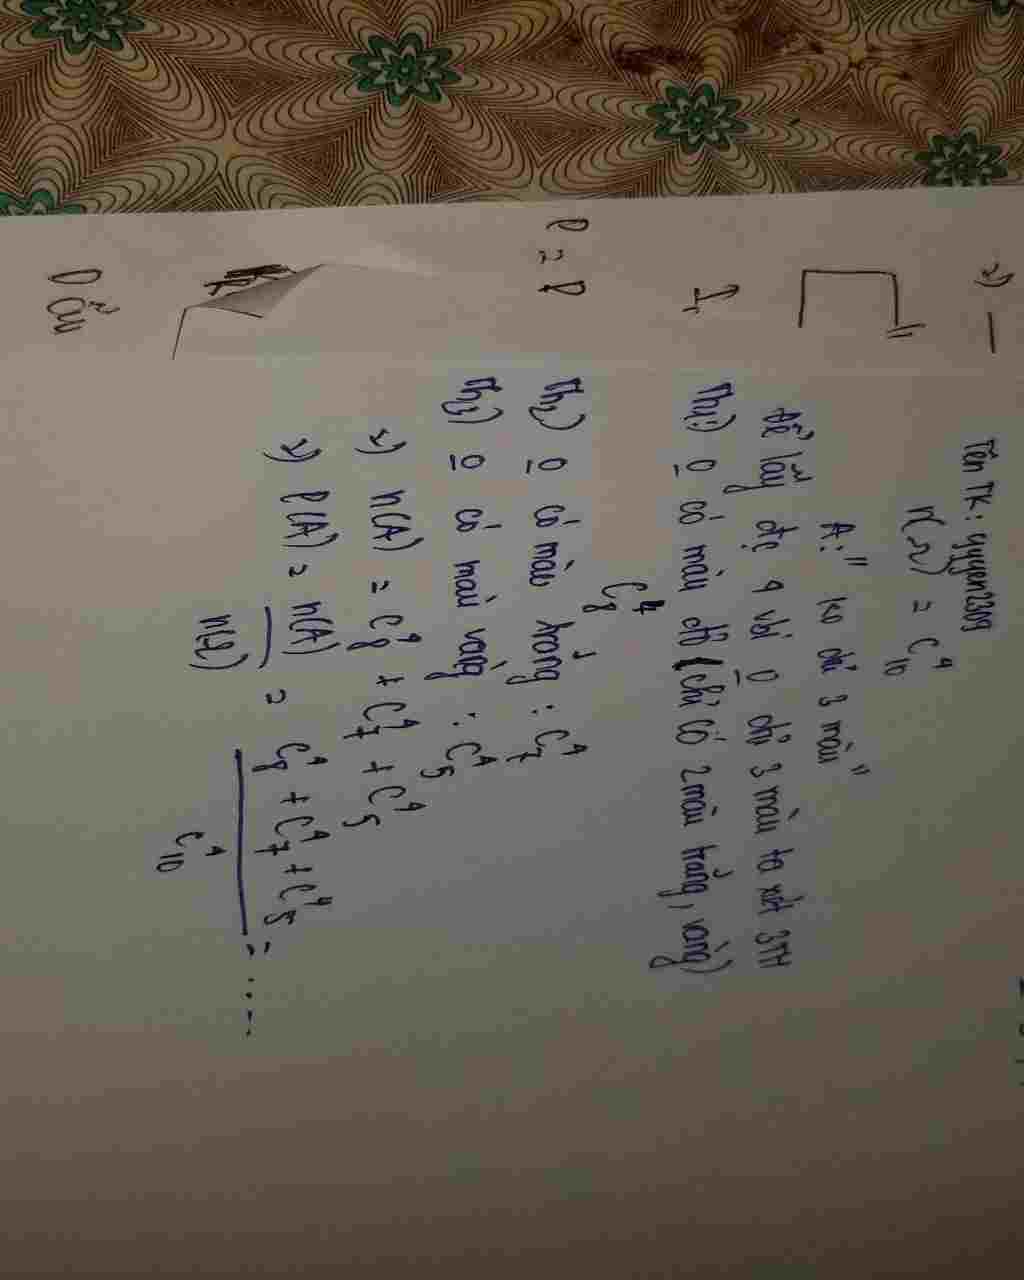 Tên TK: yyyen2309
n(Ω) = C₁₀⁴
A: " ko đủ 3 màu "
để lấy đc 4 vbi O đủ 3 màu ta xét 3TH
Th1: ) O có màu đỏ ( chỉ có 2 màu trắng, vàng )
C₈⁴
Th2) O có màu trắng : C₇⁴
Th3) O có màu vàng : C₅⁴
=) n(A) = C₈⁴ + C₇⁴ + C₅⁴
=) P(A) = n(A) / n(Ω) = C₈⁴ + C₇⁴ + C₅⁴ / C₁₀⁴ = ....